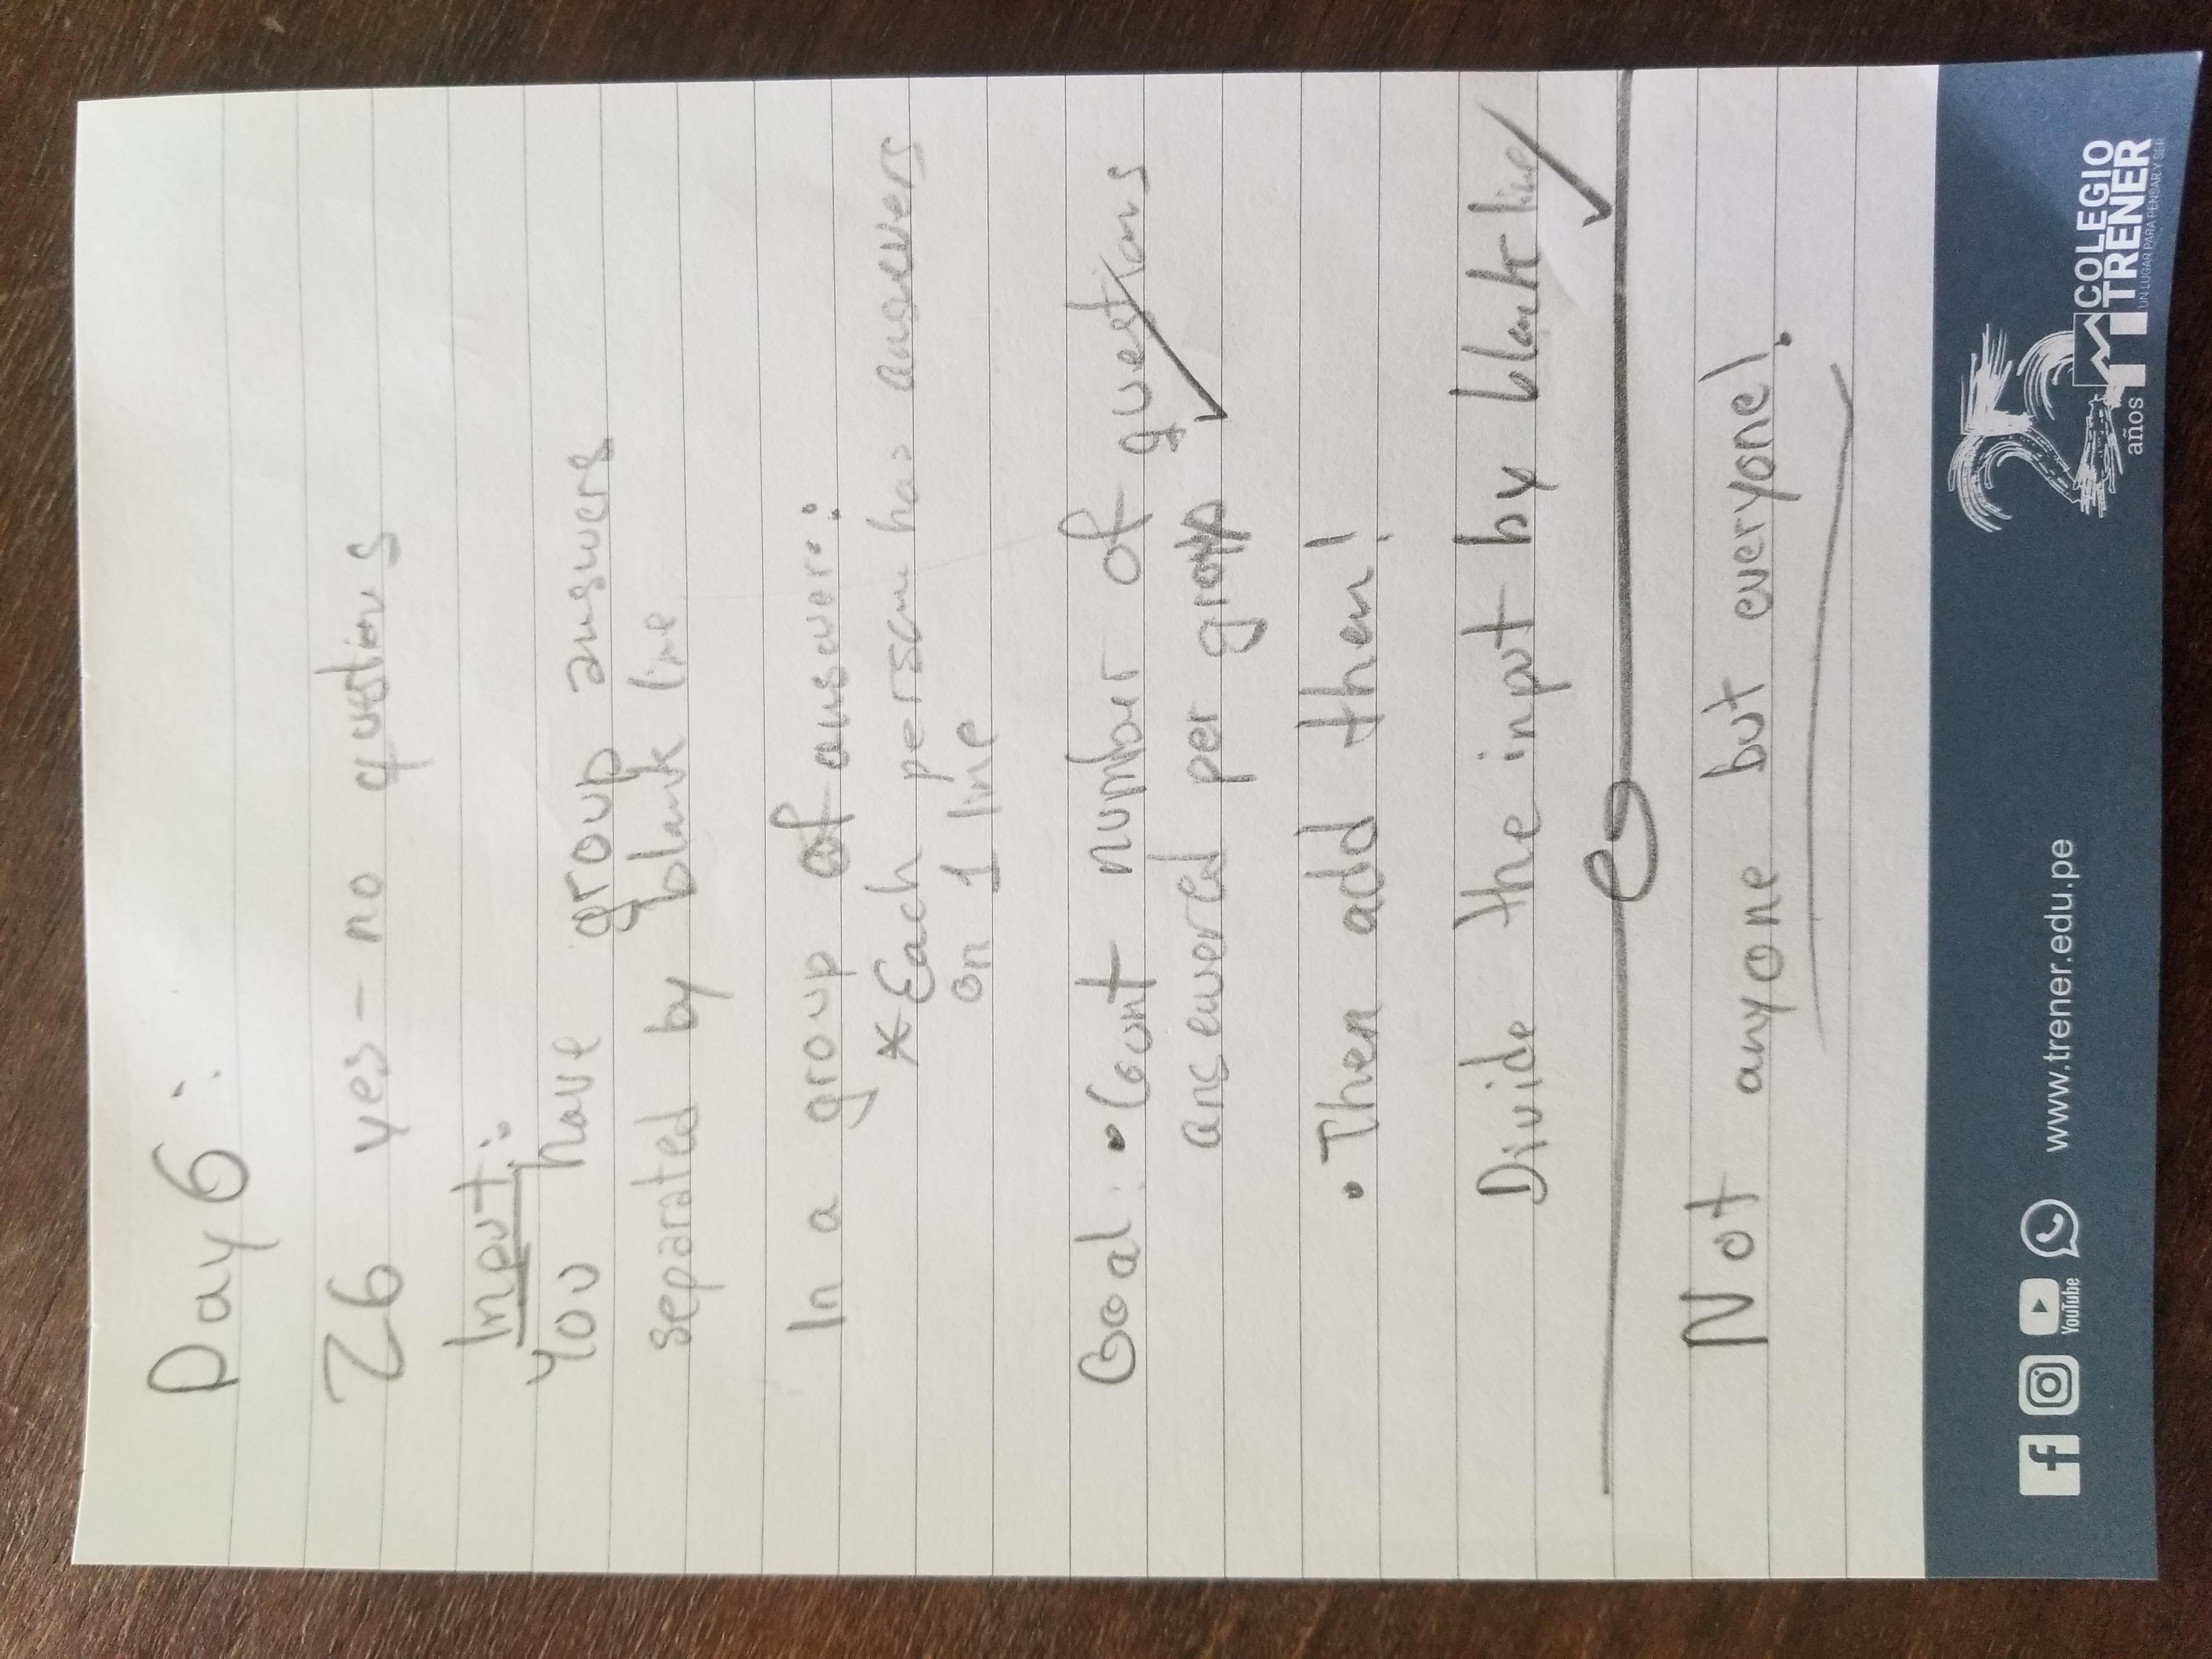 Day 6:
26 yes-no questions
Input:
You have group answers
separated by blank line
In a group of answers:
* Each person has answers
on 1 line
Goal: • Count number of questions
answered per group
• Then add them!
Divide the input by blank line
Not anyone but everyone!
YouTube
www.trener.edu.pe
25
años
COLEGIO
TRENER
UN LUGAR PARA PENSAR Y SER